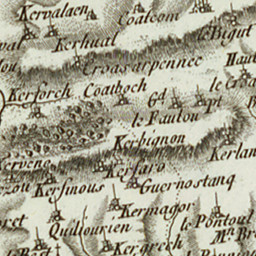 Kervalaen
Coatcom
le Bigut
Kerhual
Croasarpennec
Haut
Kerforch
Coatboch
Gd
pt
le Fautou
Kerbignon
Kerlan
Kervene
Kersaro
Kersinous
Guernostanq
Kermagor
le Pontoul
Quiliourien
Kergrech